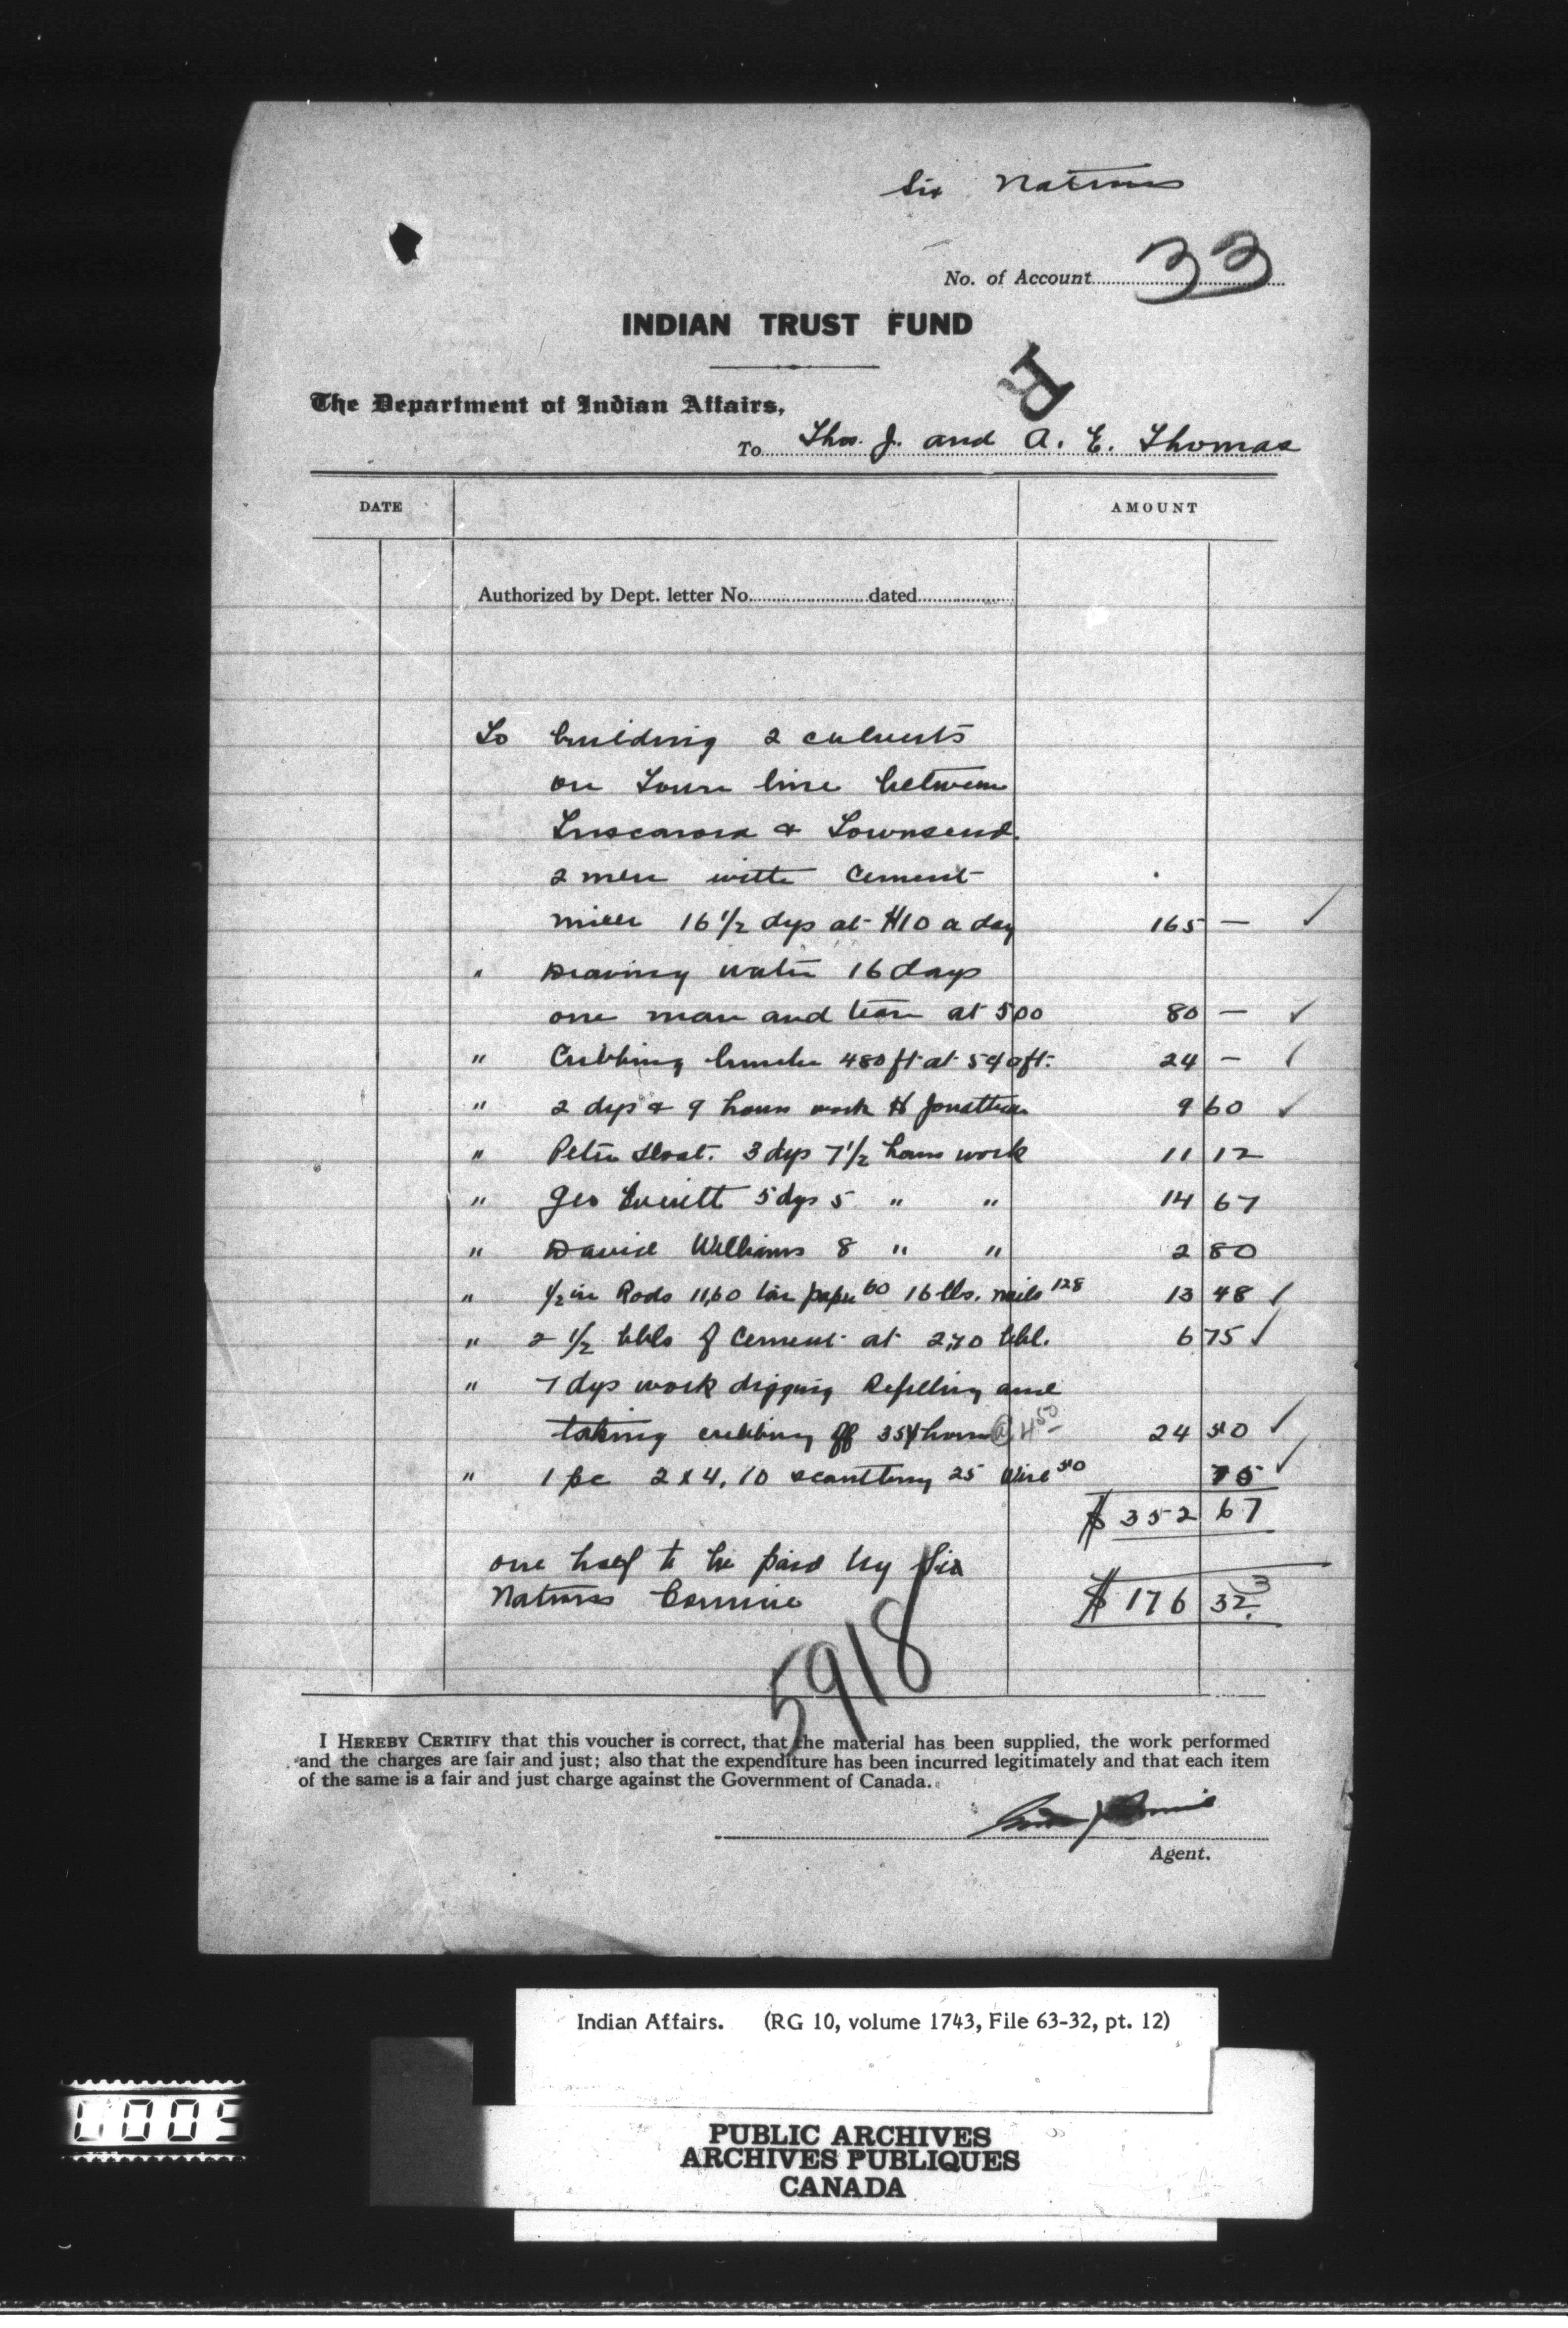 Six Nations
No. of Account 33
INDIAN TRUST FUND
R
The Department of Indian Affairs,
To Thos. J. and A. E. Thomas
DATE AMOUNT
Authorized by Dept. letter No. dated
To building 2 culverts
on Town line between
Tuscarora & Townsend.
2 men with Cement
mixer 16 1/2 dys at $10 a day 165 — ✓
" Drawing water 16 days
one man and team at 500 80 — ✓
" Cribbing lumber 480 ft at 5¢ a ft. 24 — ✓
" 2 dys & 9 hours work H Jonathan 9 60 ✓
" Peter Sloat. 3 dys 7 1/2 hours work 11 12
" Geo Everitt 5 dys 5 " " 14 67
" David Williams 8 " " 2 80
" 1/2 in Rods 11,60 tar paper 60 16 lbs. nails 128 13 48 ✓
" 2 1/2 bbls of Cement at 2,70 bbl. 6 75 ✓
" 7 dys work digging Refilling and
taking cribbing off 35¢ hour @ 4 50 24 50 ✓
" 1 pc 2 x 4, 10 scantling 25 Wire 50 75 ✓
$ 352 67
one half to be paid by Six
Nations $ 176 32 3
5918
I HEREBY CERTIFY that this voucher is correct, that the material has been supplied, the work performed
and the charges are fair and just; also that the expenditure has been incurred legitimately and that each item
of the same is a fair and just charge against the Government of Canada.
Agent.
Indian Affairs. (RG 10, volume 1743, File 63-32, pt. 12)
0005
PUBLIC ARCHIVES
ARCHIVES PUBLIQUES
CANADA